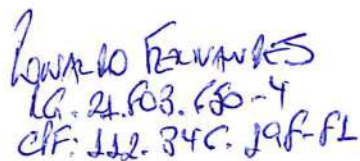 RONALDO FERNANDES
RG. 21.803.680-4
CPF: 112.346.198-81